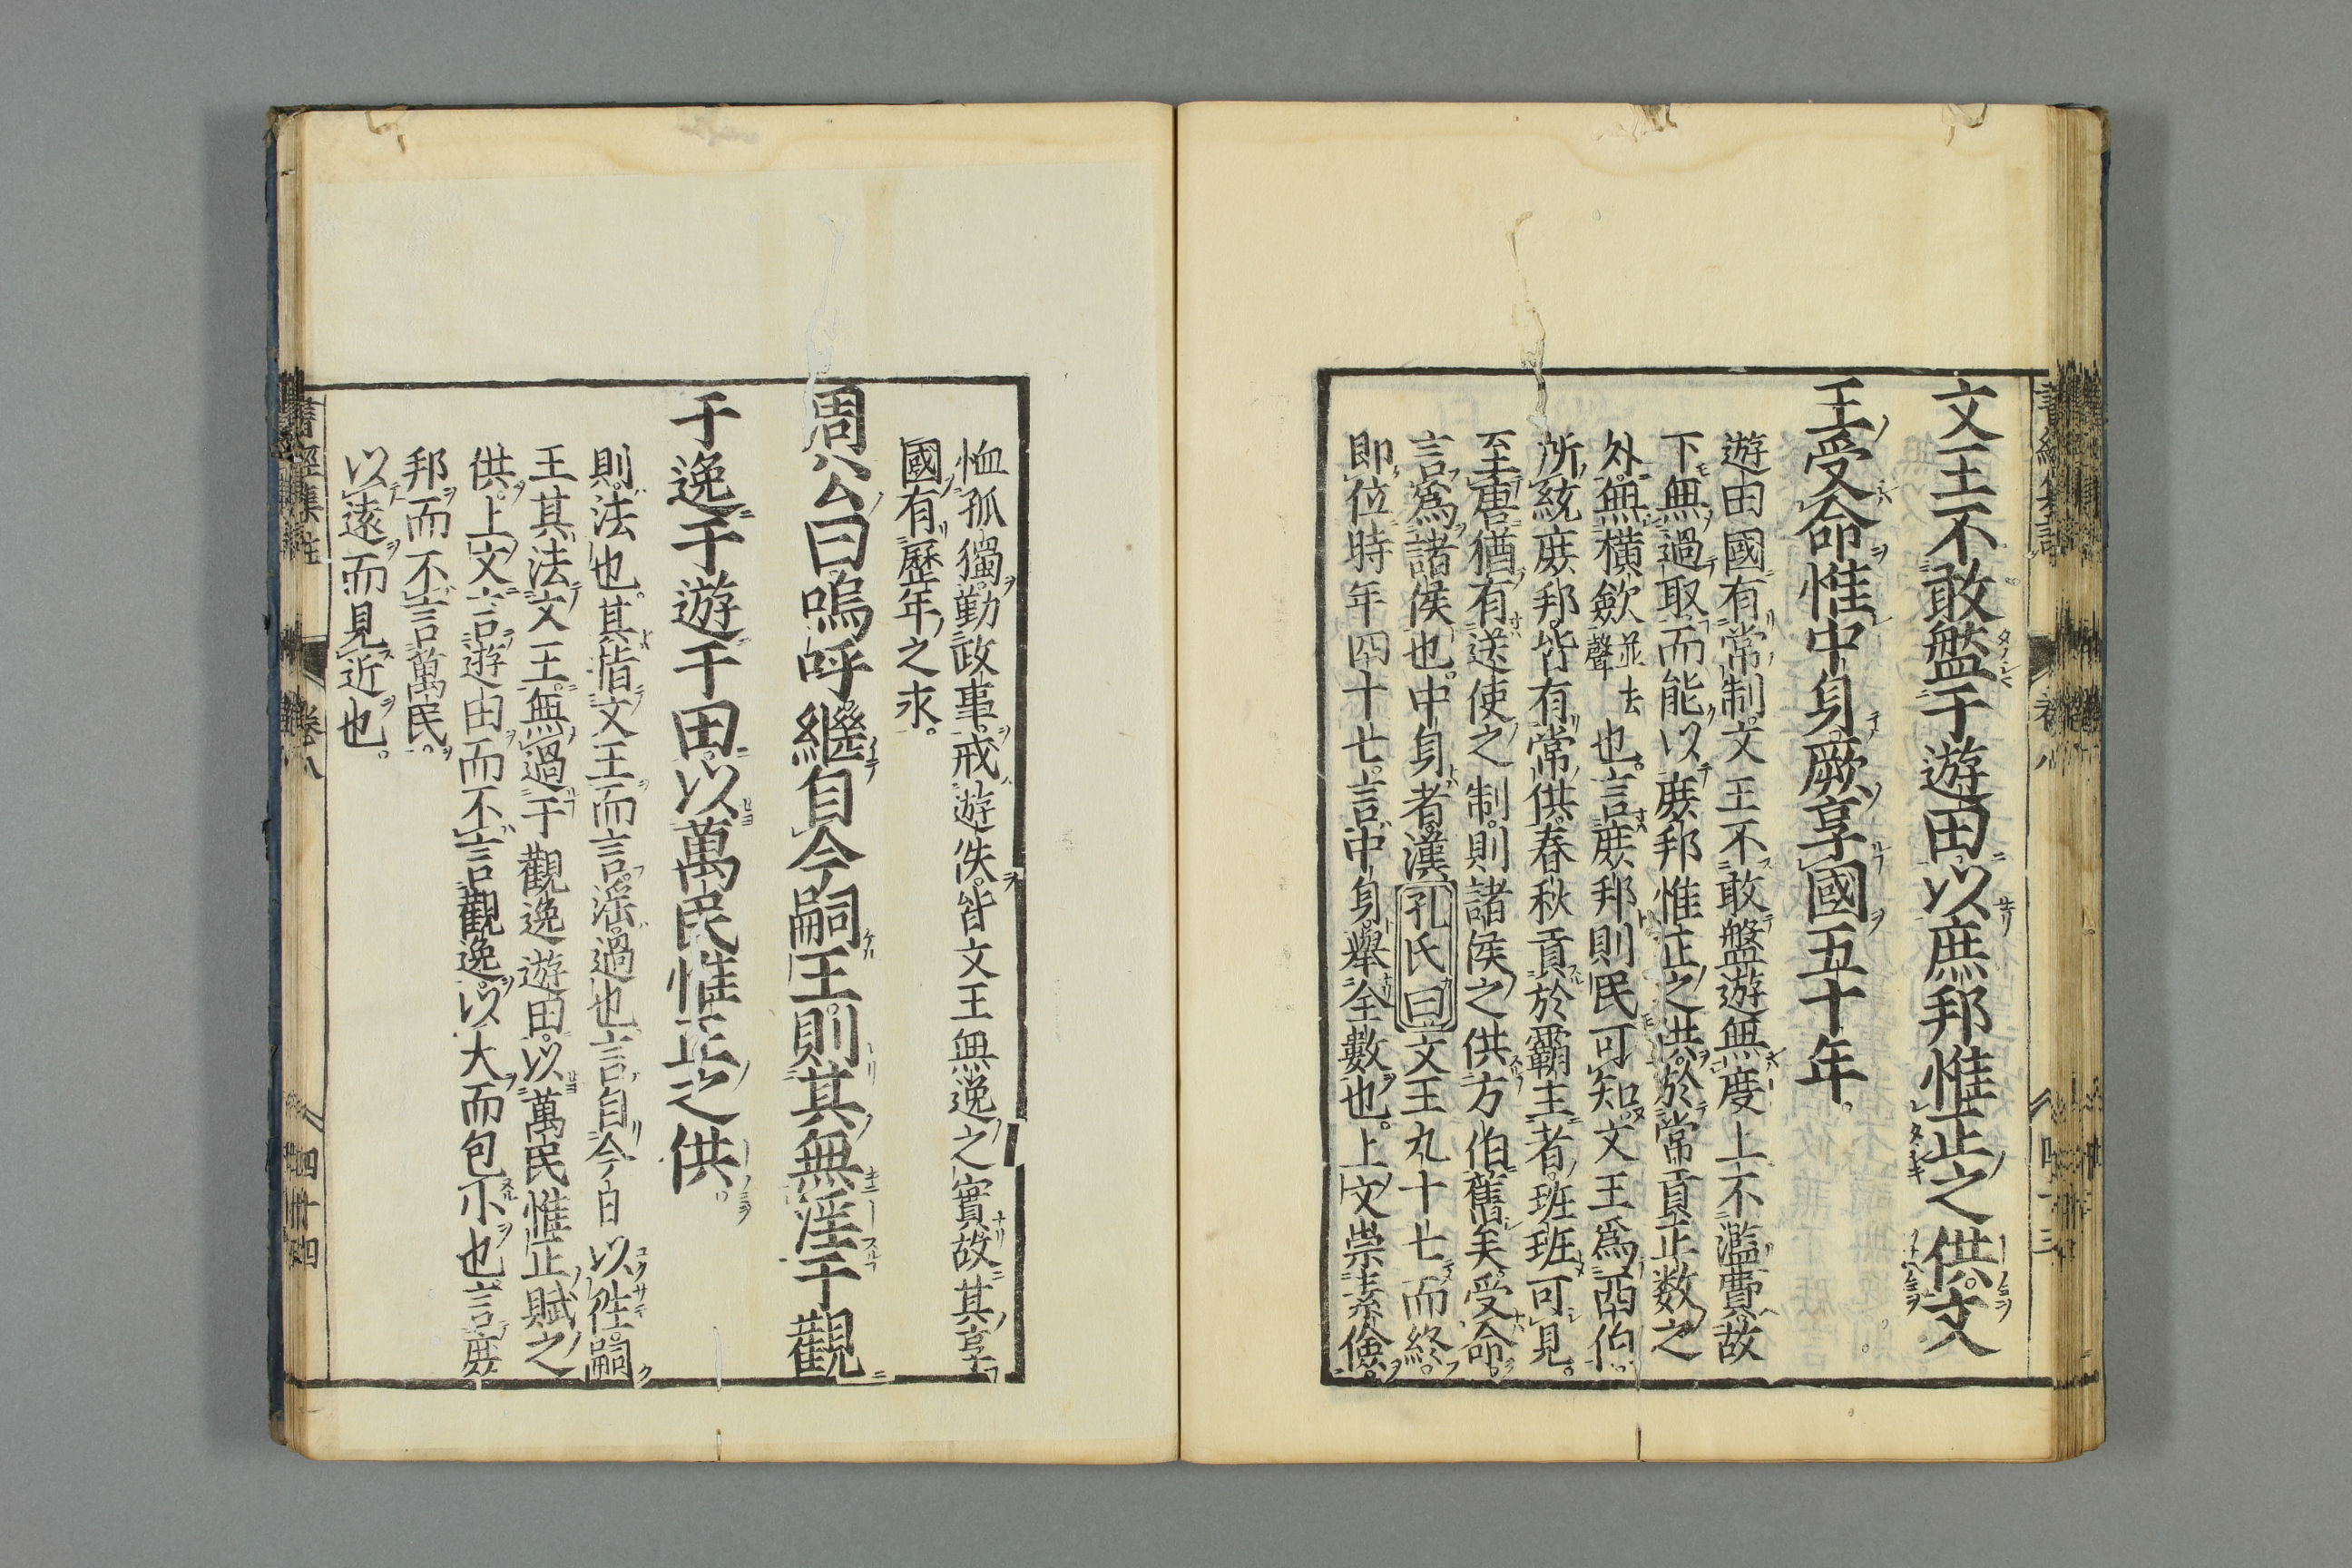 文王不敢盤于遊田以庶邦惟正之供文
王受命惟中身厥享國五十年。
遊田國有常制。文王不敢盤遊無度。上不濫費。故
下無過取。而能以庶邦惟正之供。於常貢正数之
外。無橫斂並去聲也。言庶邦則民可知。文王爲西伯。
所統庶邦。皆有常供。春秋貢於霸主者。班班可見。
至唐猶有送使之制。則諸侯之供方伯舊矣。受命。
言爲諸侯也。中身者。漢孔氏曰文王九十七而終。
即位時年四十七。言中身。舉全數也。上文崇素儉。
恤孤獨。勤政事。戒遊佚。皆文王無逸之實。故其享
國有歷年之永。
周公曰嗚呼。繼自今嗣王。則其無淫于觀
于逸于遊于田。以萬民惟正之供。
則。法也。其。指文王而言。淫。過也。言自今日以徃。嗣
王其法文王。無過于觀逸遊田。以萬民惟正賦之
供。上文言遊田而不言觀逸。以大而包小也。言庶
邦而不言萬民。
以遠而見近也。
書經集註
卷八
四十四